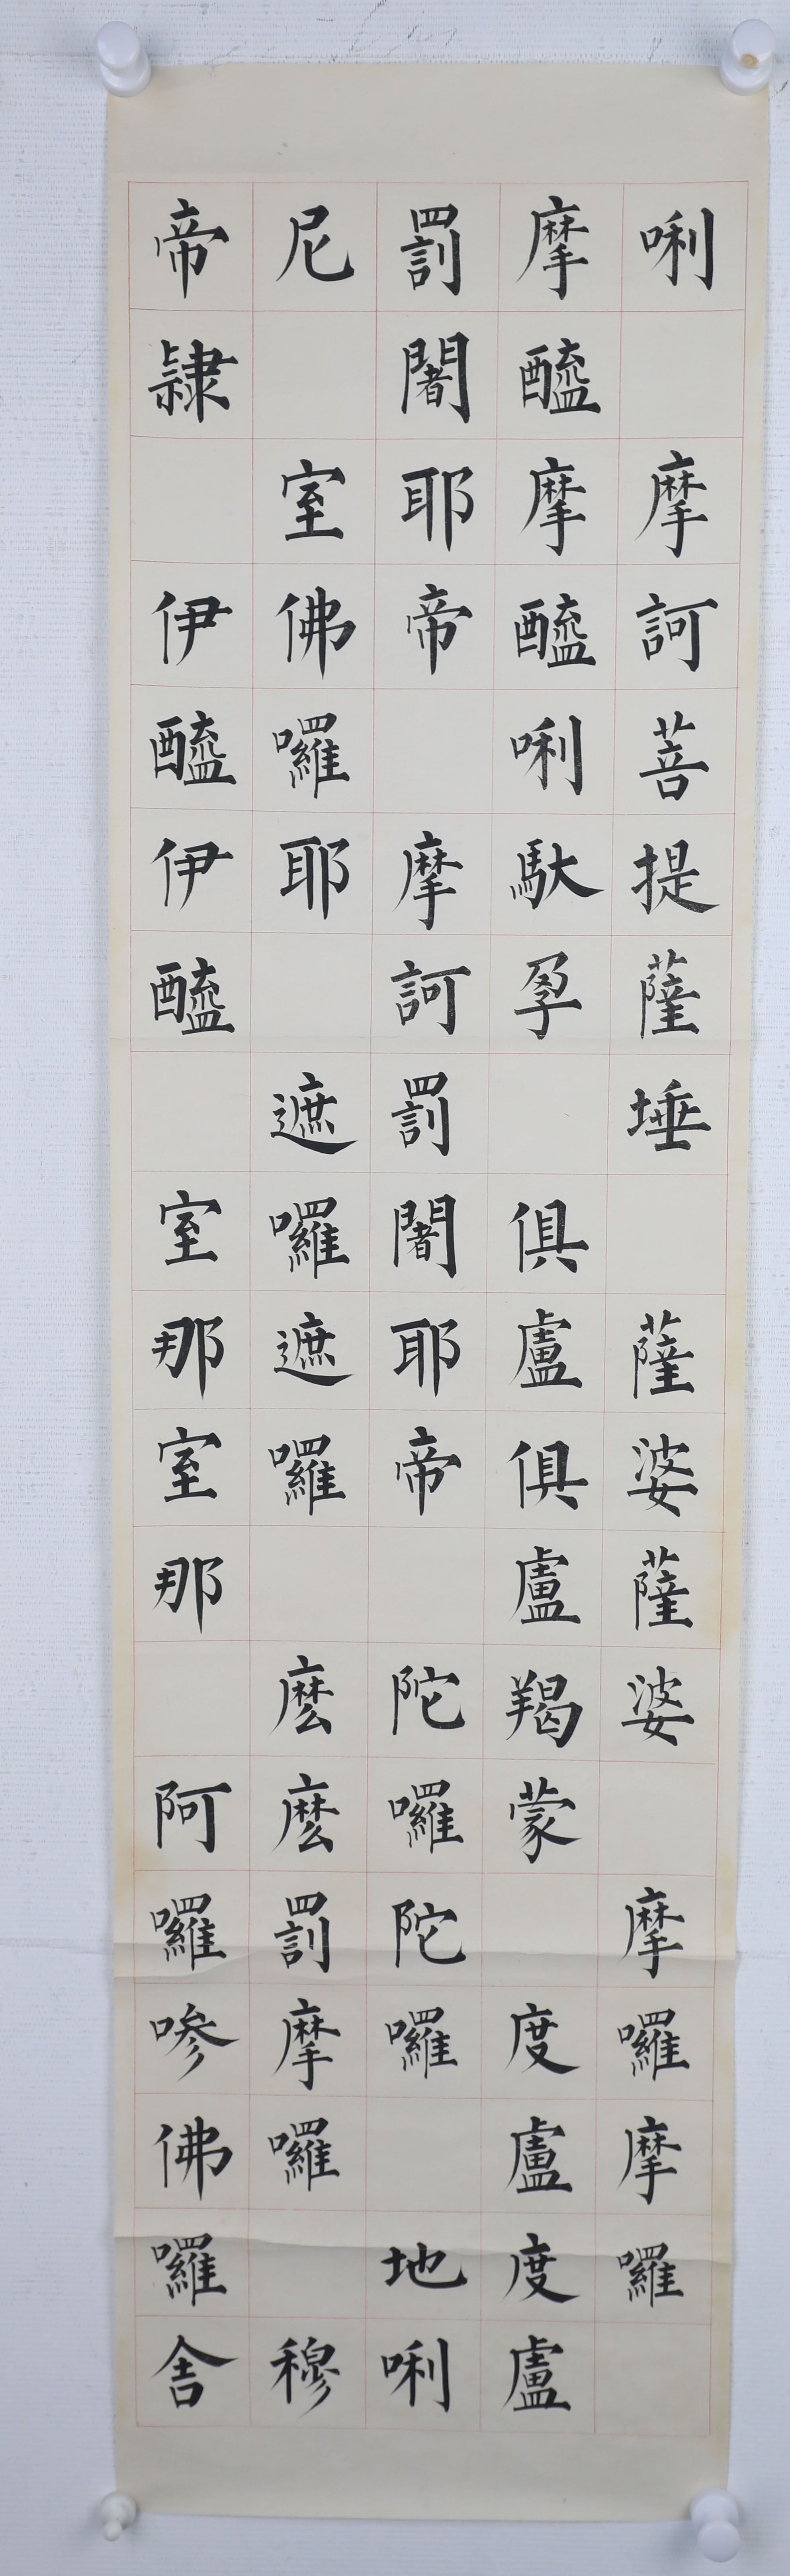 唎　摩訶菩提薩埵　薩婆薩婆　摩囉摩囉
摩醯摩醯唎馱孕　俱盧俱盧羯蒙　度盧度盧
罰闍耶帝　摩訶罰闍耶帝　陀囉陀囉　地唎
尼　室佛囉耶　遮囉遮囉　麼麼罰摩囉　穆
帝隸　伊醯伊醯　室那室那　阿囉嘇佛囉舍